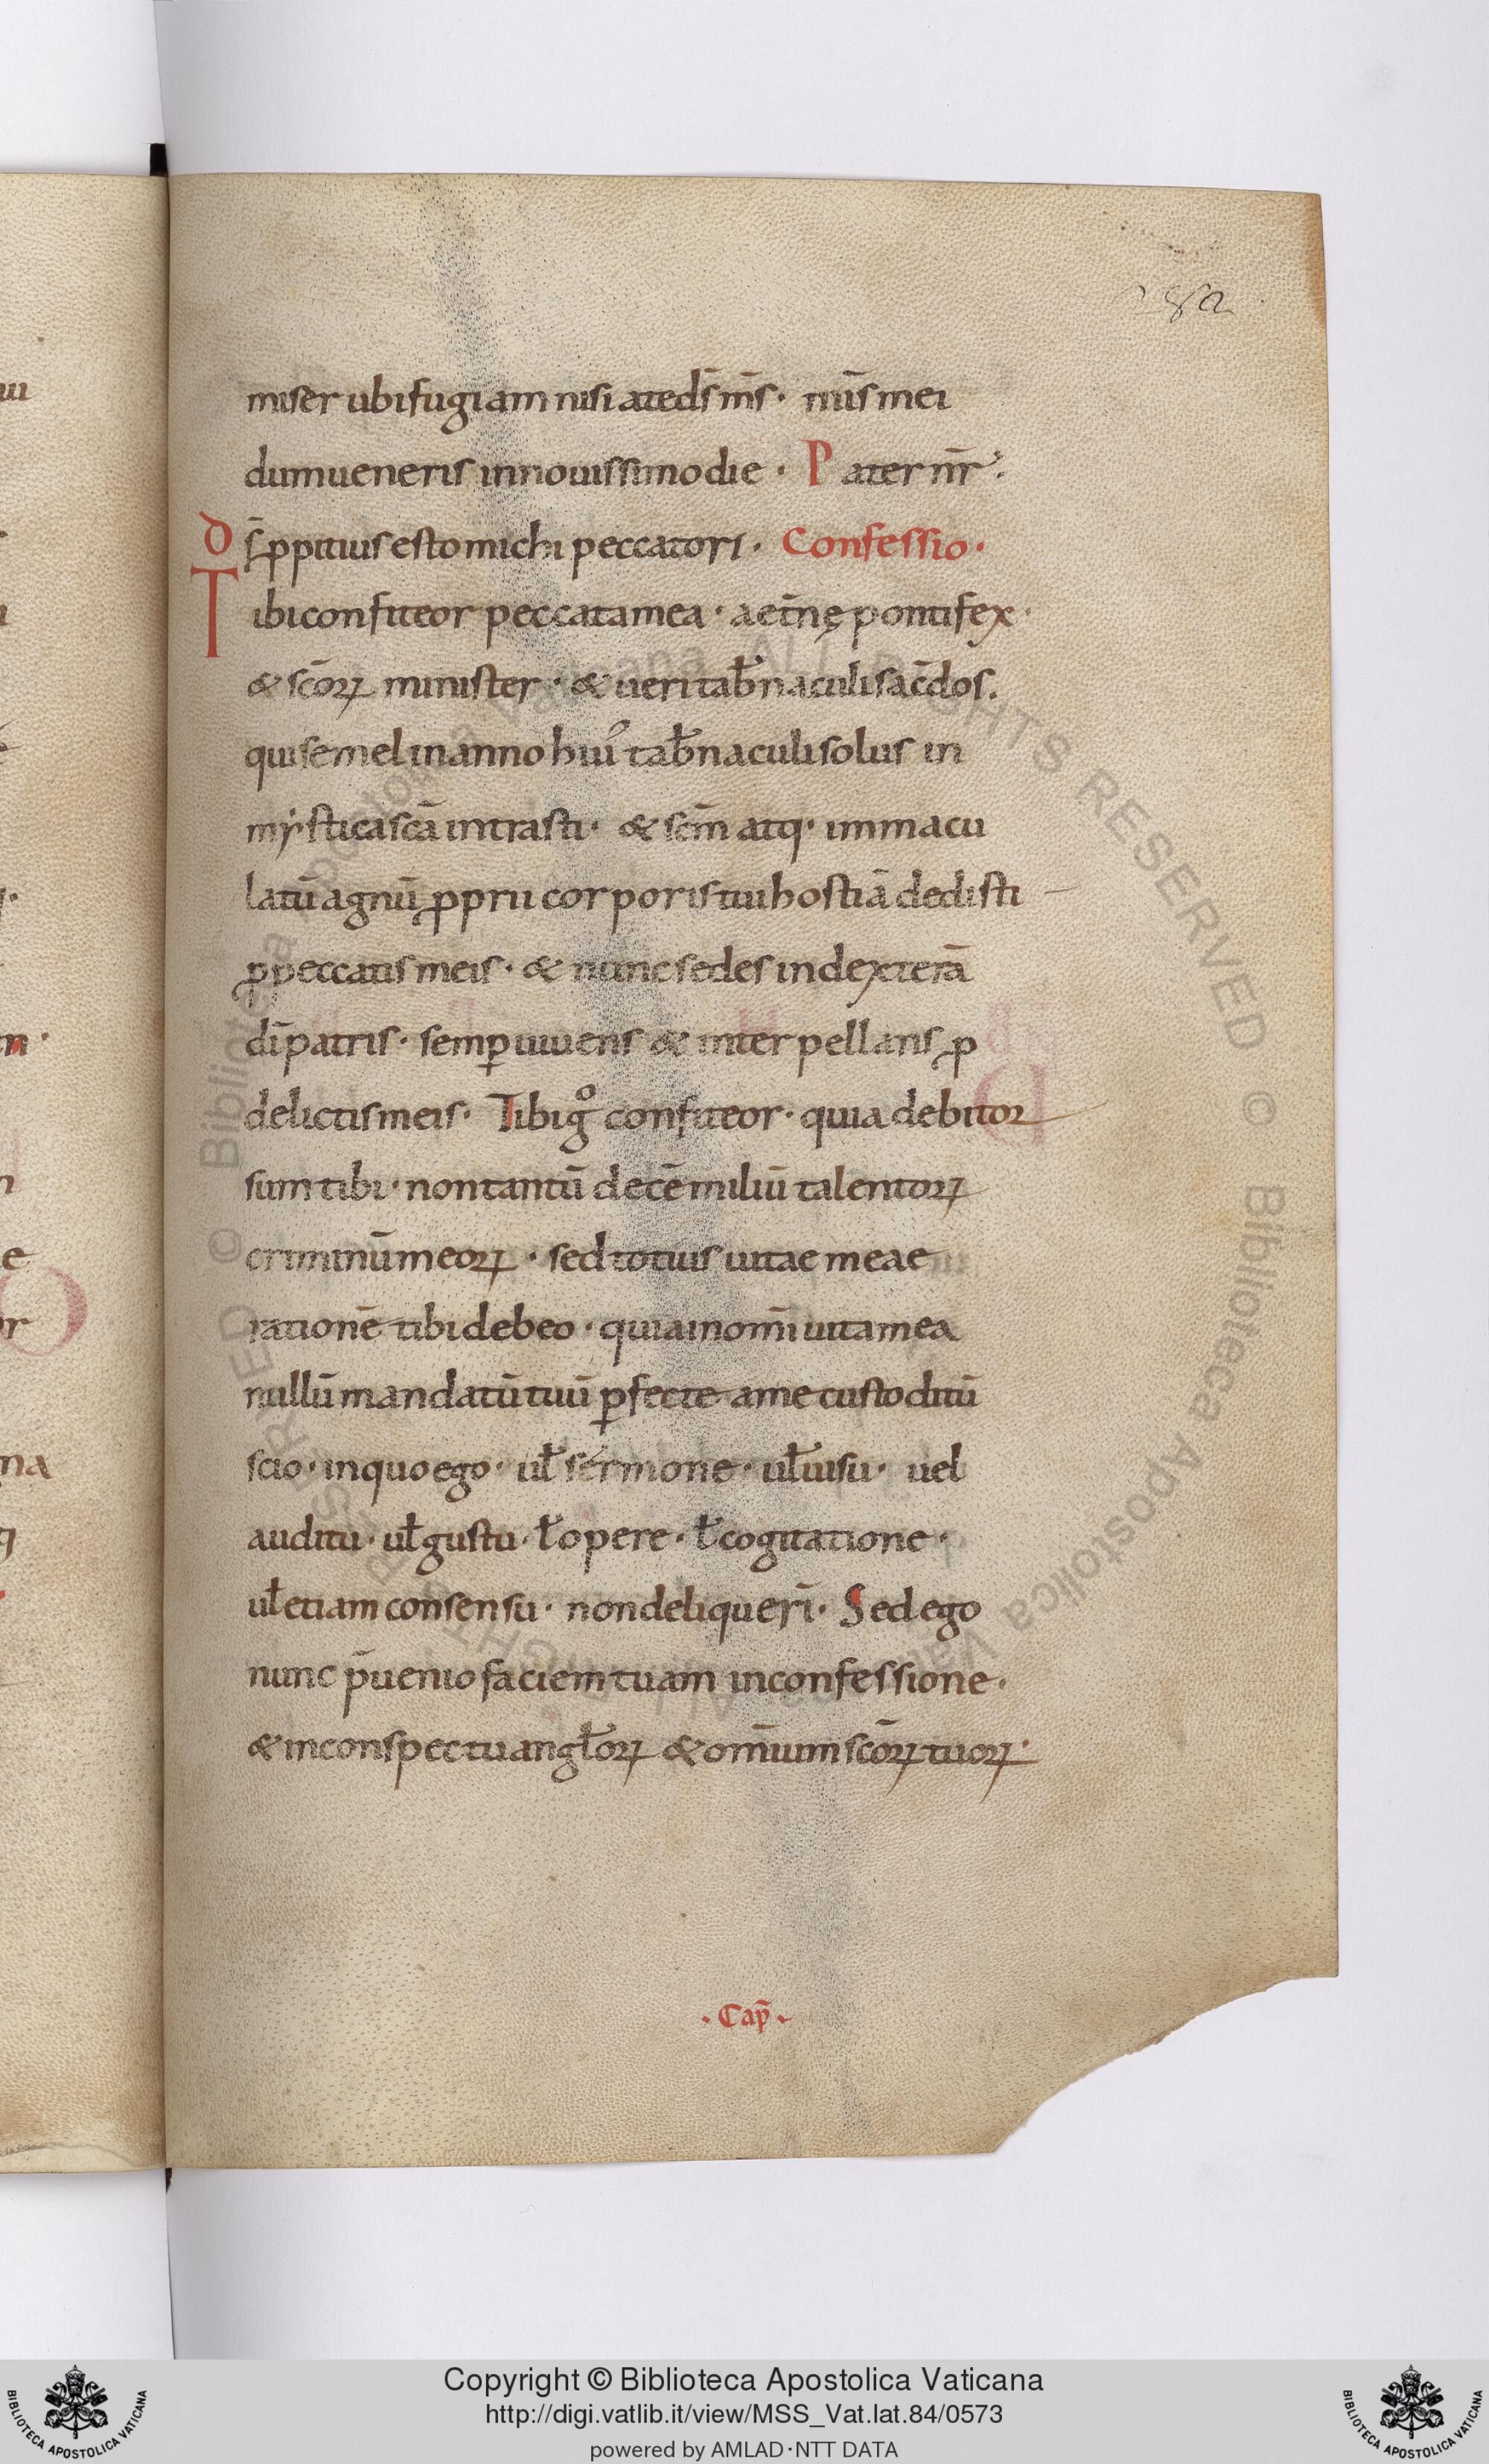 282
miser ubi fugiam nisi ad te ds̄ ms̄ · mīs mei
dum ueneris in nouissimo die · Pater nr̄ ·
Ds̄ ꝓpitius esto michi peccatori · Confessio ·
Tibi confiteor peccata mea · aet̄nę pontifex ·
& sc̄oꝝ minister · & ueri tab̄naculi sac̄dos .
qui semel in anno huiꝰ tab̄naculi solus in
mẏstica sc̄a intrasti · & sc̄m atq· immacu
latū agnū ꝓprii corporis tui hostiā dedisti
ꝓ peccatis meis · & nunc sedes in dexterā
dī patris · semꝑ uiuens & interpellans ꝓ
delictis meis · Tibi gͦ confiteor · quia debitor
sum tibi · non tantū decē miliū talentoꝝ
criminū meoꝝ · sed totius uitae meae
rationē tibi debeo · quia in om̄i uita mea
nullū mandatū tuū ꝑfecte a me custoditū
scio · in quo ego · ul̄ sermone · ul̄ uisu · uel
auditu · ul̄ gustu · ł opere · ł cogitatione ·
ul̄ etiam consensu · non deliquerī · Sed ego
nunc p̄uenio faciem tuam in confessione ·
& in conspectu angl̄oꝝ & om̄ium sc̄oꝝ tuoꝝ ·
· Cap̄ ·
Copyright © Biblioteca Apostolica Vaticana
http://digi.vatlib.it/view/MSS_Vat.lat.84/0573
powered by AMLAD·NTT DATA
BIBLIOTECA APOSTOLICA VATICANA
BIBLIOTECA APOSTOLICA VATICANA
© Biblioteca Apostolica Vaticana ALL RIGHTS RESERVED © Biblioteca Apostolica Vaticana ALL RIGHTS RESERVED